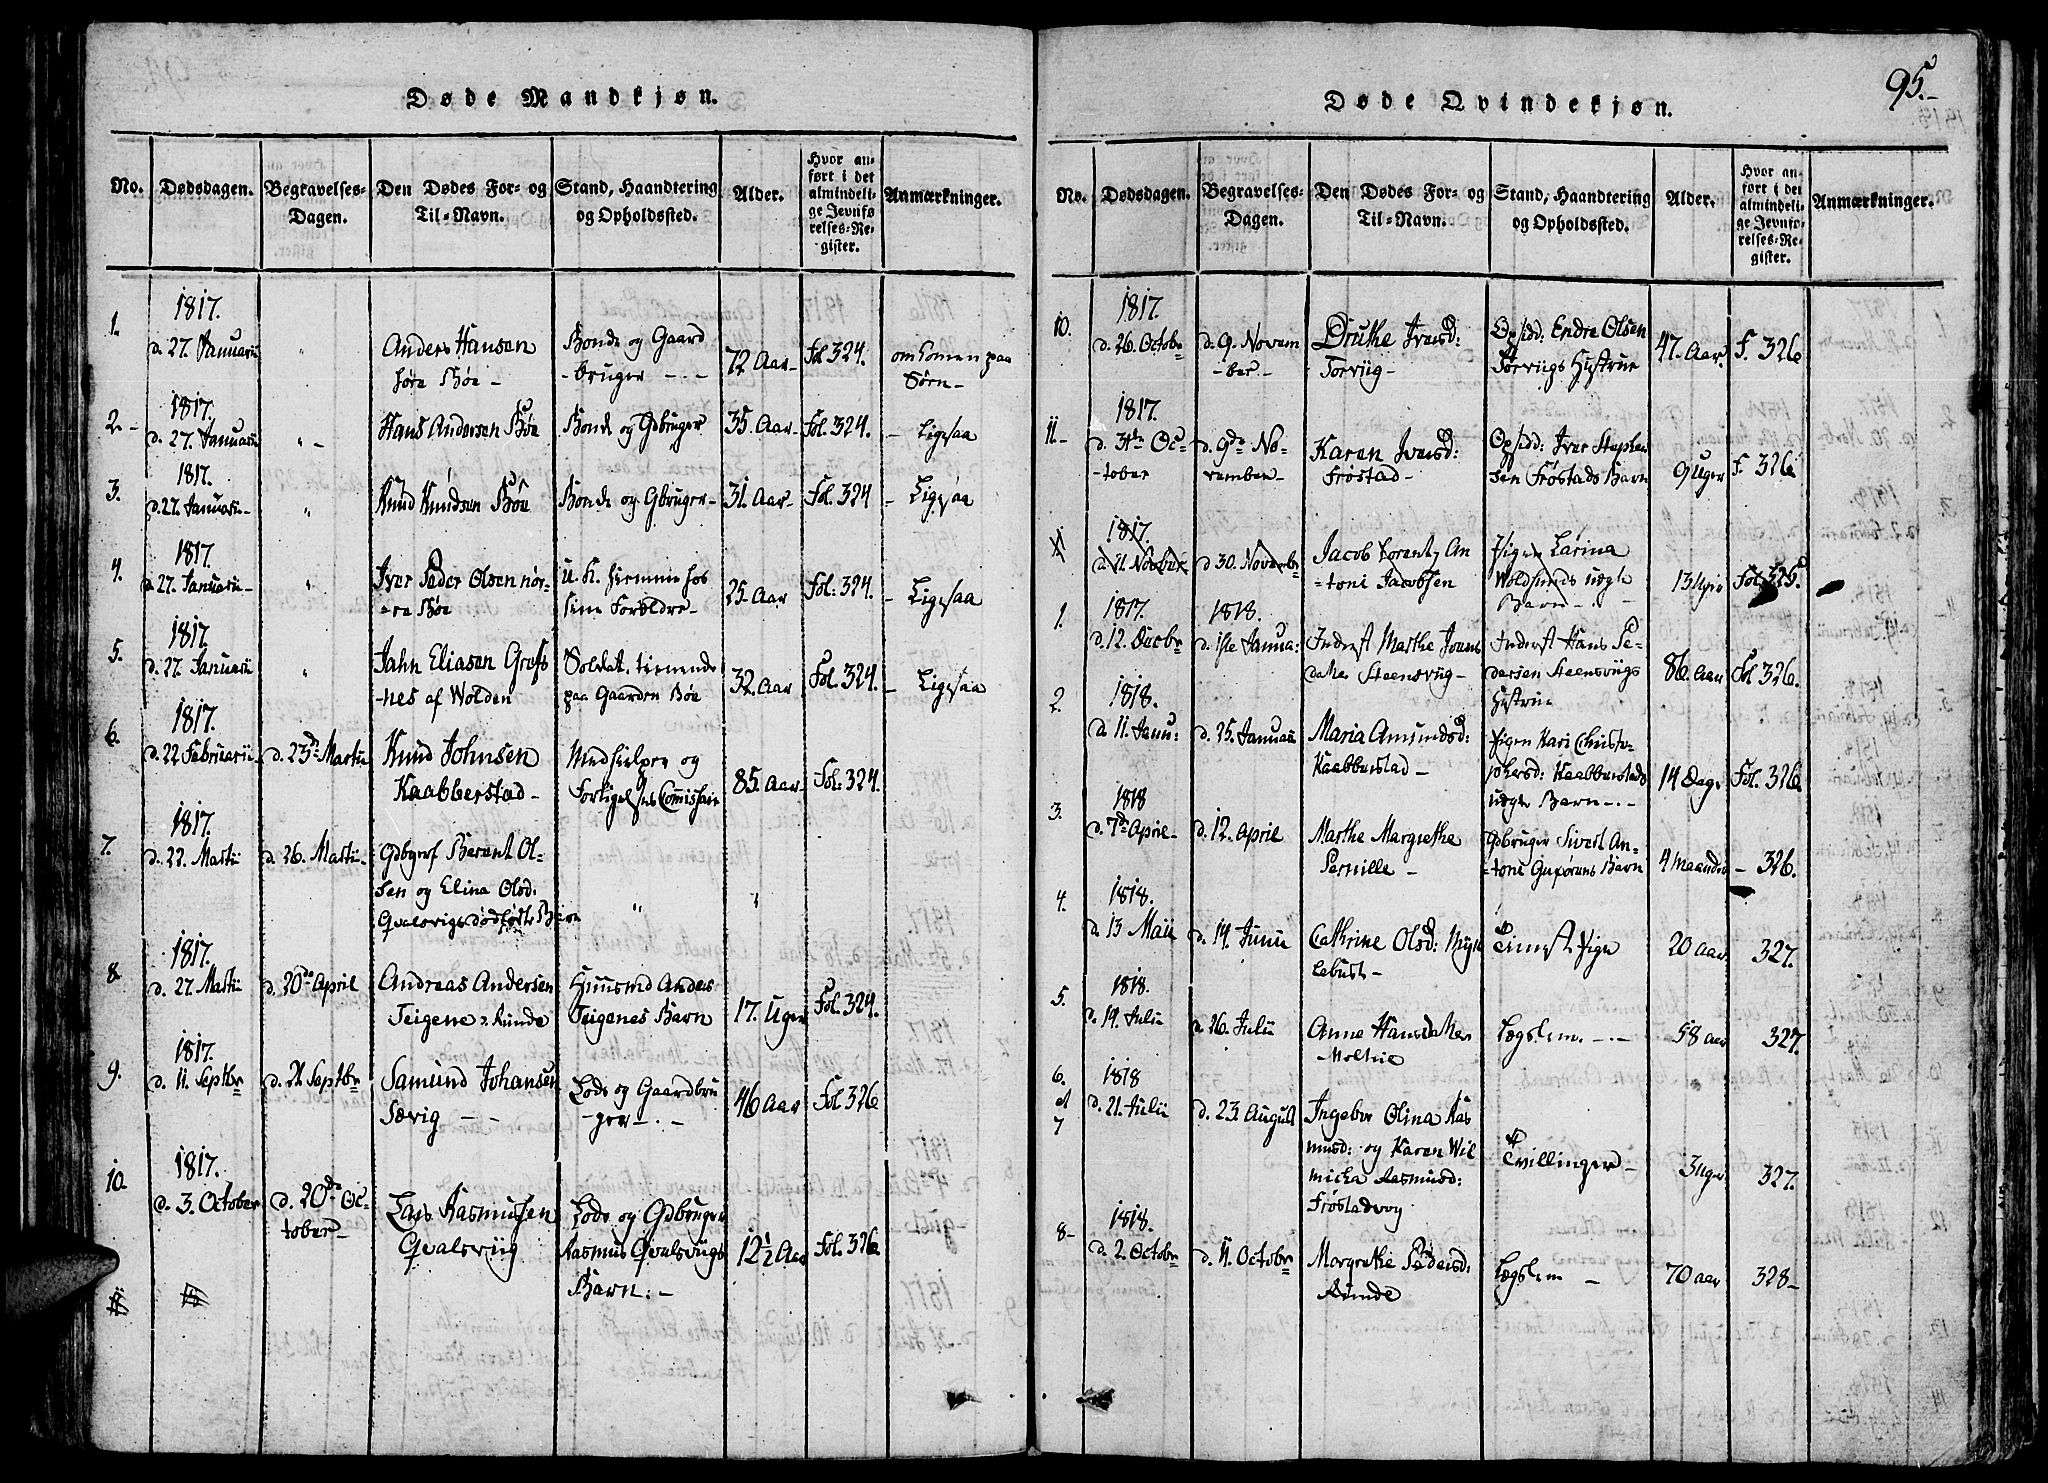 Døde Mandkjøn.
No.
Dødsdagen.
Begravelses-
Dagen.
Den Dødes For- og
Til-Navn.
Stand, Haandtering
og Opholdssted.
Alder.
Hvor an-
ført i det
almindeli-
ge Jevnfø
relses-Re-
gister.
Anmærkninger.
1.
1817.
d. 27. Januarii
Anders Hansen
Bøe -
Bonde og Gaard
-bruger -.-
72 Aar-
Fol 324.
omkomen paa
Søen-
2.-
1817.
d. 27. Januarii
" -
Hans Andersen Bøe
Bonde og Gdbruger
35. Aar-
Fol. 324.
- Ligesaa
3.
1817.
d. 27. Januarii-
"
Knud Knudsen Bøe
Bonde og Gbruger-
31. Aar-
Fol. 324
- Ligesaa
4.
1817.
d. 27. Januarii-
"
Iver Peder Olsen nør-
-re Bøe
u. K. hiemme hos
sine Forældre-
25. Aar
Fol: 324.
- Ligesaa
5.
1817.
d. 27. Januarii
"
Jahn Eliasen Grøfs
-nes af Wolden
Soldat, tienende
paa Gaarden Bøe
32. Aar
Fol. 324.
- Ligesaa
6.
1817.
d. 22 Februarii-
d. 23de Martii
Knud Johnsen
Kaabberstad-
Medhielper og
Forligelses Comissair
85. Aar-
Fol. 324.
7.
1817.
d. 22. Martii
d. 26. Martii-
Berent Ol-
sen og Elina Olsd:
Qvalsvigs dødfødte Barn
"
"
8.
1817.
d. 27. Martii
d. 20de April
Andreas Andersen
Teigene Runde
Huusmd Anders
Teigenes Barn
17. Uger
Fol. 324.
9.
1817.
d. 11. Septbr
d. 21 Septbr
Samund Johansen
Sævig - -
Lods og Gaardbru
ger-.-
46 Aar
Fol 326
10.
1817.
d. 3. October
d. 20de Oc-
tober-
Lars Rasmussen
Qvalsviig
Lods og Gdbruger
Rasmus Qvalsviigs
Barn:-
12 1/2 Aar
Fol. 326
11
95.-
Døde Qvindekjøn.
No.
Dødsdagen.
Begravelses-
Dagen.
Den Dødes For- og
Til-Navn.
Stand, Haandtering
og Opholdssted.
Alder.
Hvor an-
ført i det
almindeli-
ge Jevnfø-
relses-Re-
gister.
Anmærkninger.
10.
1817.
d. 26. Octobr
d. 9. Novem
-ber-
Druthe Iversd:
Torviig-
Opsidd: Endre Olsen
Torviigs Hustrue
47. Aar
F. 326
11-
1817.
d. 31te Oc-
-tober
d. 9de No-
vember-
Karen Iversd:
Frøstad-
Opsidd: Iver Stephen
sen Frøstads Barn
9 Uger
F. 326
11
1817.
d. 21. Novber
d. 30. Novembr
Jacob Lorentz An
-toni Jacobsen
Pigen Larina
Woldsunds uægte
Barn-.
Fol. 325.
1.
1817.
d. 12. Decbr
1818.
d. 1ste Janua:
Inderst Marthe Ivers
datter Steensviig-
Inderst Hans Pe-
dersen Steensviigs
Hustrue
86. Aar
Fol 326.
2.
1818.
d. 11. Janu:
d. 25. Januarii
Maria Amundsd:
Kaabberstad-
Pigen Kari Christo-
phersd: Kaabberstads
uægte Barn-.-
14 Dage
Fol. 326.
3.
1818
d. 7de April-
d. 12. April
Marthe Margrethe
Pernille -
Gdbruger Sivert An-
-toni Barn
4 Maaneder
- 326.
4.
1818.
d. 13 Maii
d. 14. Junii
Cathrine Olsd: Mykle
Lebust-
Tienest. Pige
20 Aar
327.
5.
1818.
d. 19. Julii
d. 26. Julii
Anne Hansdatter
Moltue
Lægslem.-.-
58 aar
327.
6.
et
7
1818
d. 21. Julii
d. 23. August
Ingebor Olina Ras
musd: og Karen Wil
micka Rasmusd:
Frøstadvog
Tvillinger-
3 uger
327.
8-
1818.
d. 2. Octobr
d. 11. Octobr
Margrethe Pedersd:
Runde
Lægslem -
70 aar
328-